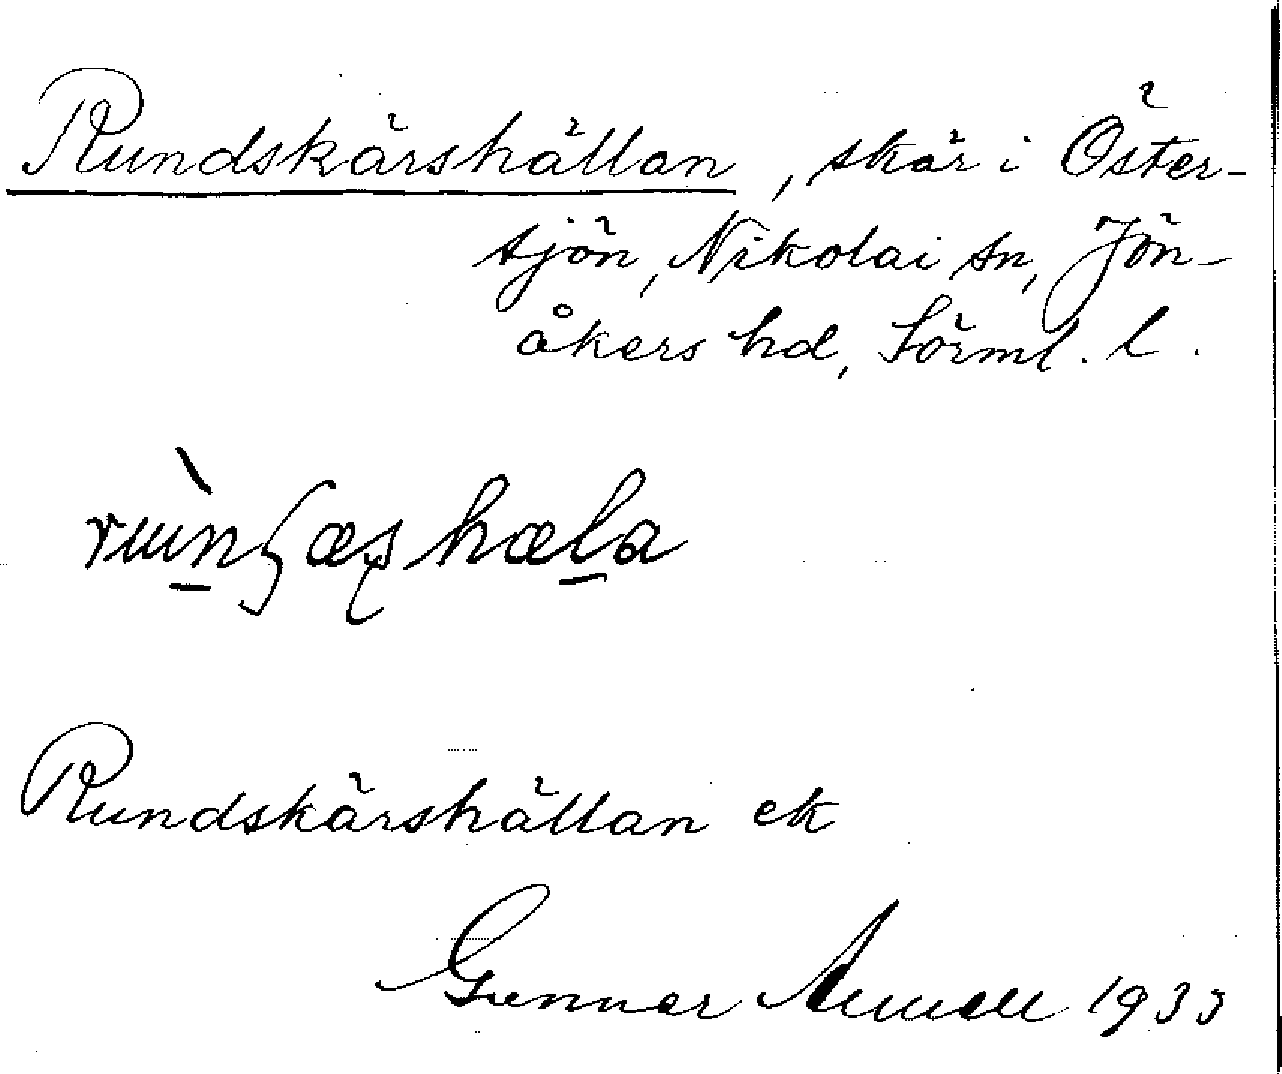 Rundskärshällan, skär i Öster-
sjön, Nikolai sn, Jön-
åkers hd, Sörml. l.
Rundskärshällan ek
Gunnar 1933